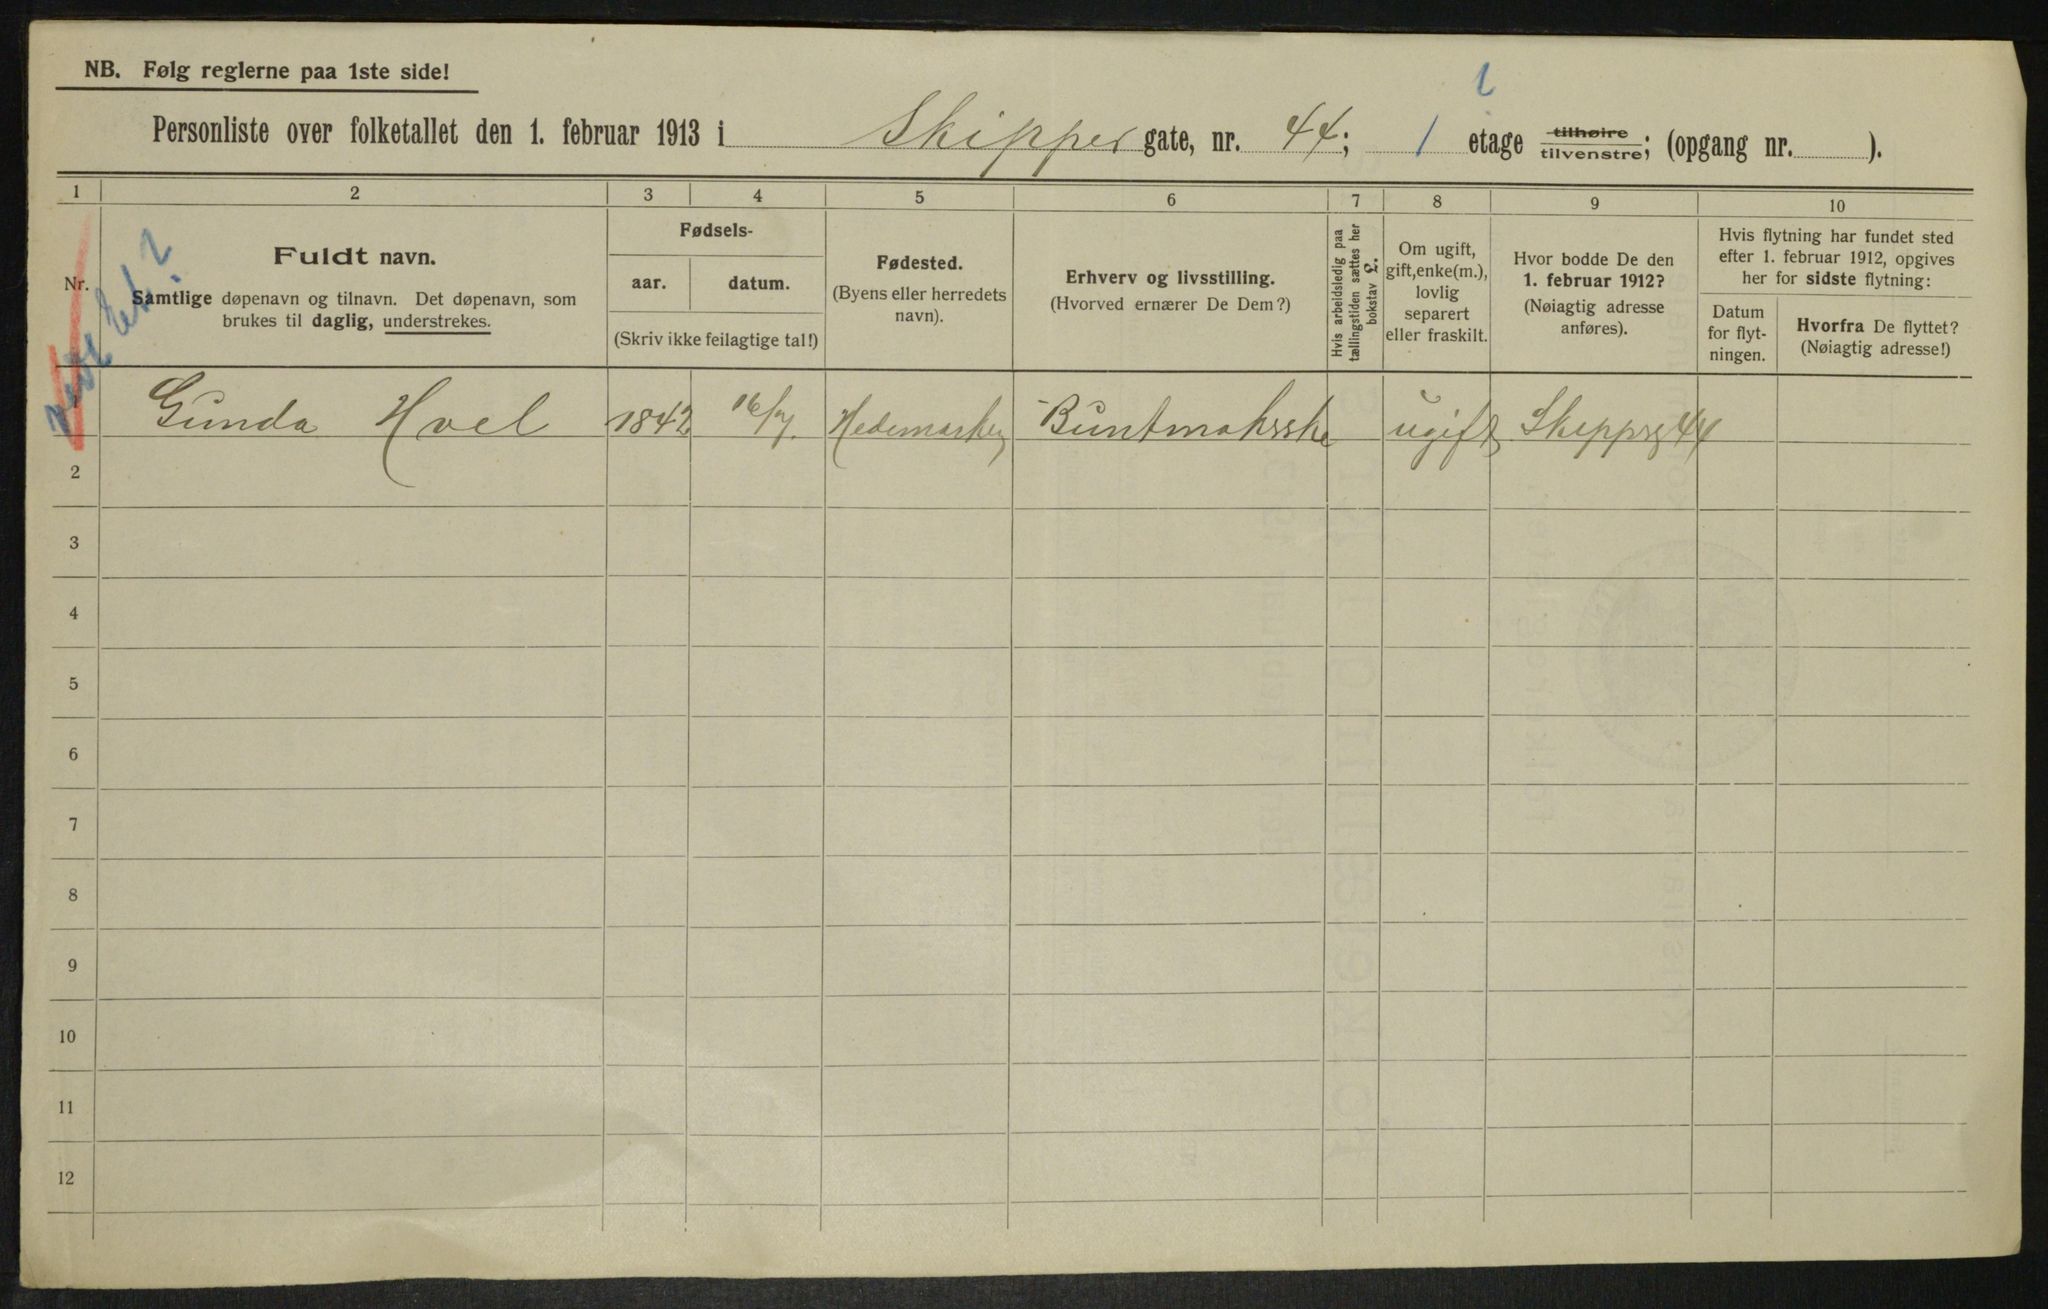 NB. Følg reglerne paa 1ste side!
Personliste over folketallet den 1. februar 1913 i Skipper gate, nr. 44; 1 etage tilhøire tilvenstre; (opgang nr. ).
1 2 3 4 5 6 7 8 9 10
Nr.
Fuldt navn.
Samtlige døpenavn og tilnavn. Det døpenavn, som
brukes til daglig, understrekes.
Fødsels-
aar. datum.
(Skriv ikke feilagtige tal!)
Fødested.
(Byens eller herredets
navn).
Erhverv og livsstilling.
(Hvorved ernærer De Dem?)
Hvis arbeidsledig paa
tællingstiden sættes her
bokstav £.
Om ugift,
gift, enke(m.),
lovlig
separert
eller fraskilt.
Hvor bodde De den
1. februar 1912?
(Nøiagtig adresse
anføres).
Hvis flytning har fundet sted
efter 1. februar 1912, opgives
her for sidste flytning:
Datum
for flyt-
ningen.
Hvorfra De flyttet?
(Nøiagtig adresse!)
1 Gunda Hvel 1842 16/7. Hedemarken Buntmakerske ugift Skipprg 44
2
3
4
5
6
7
8
9
10
11
12